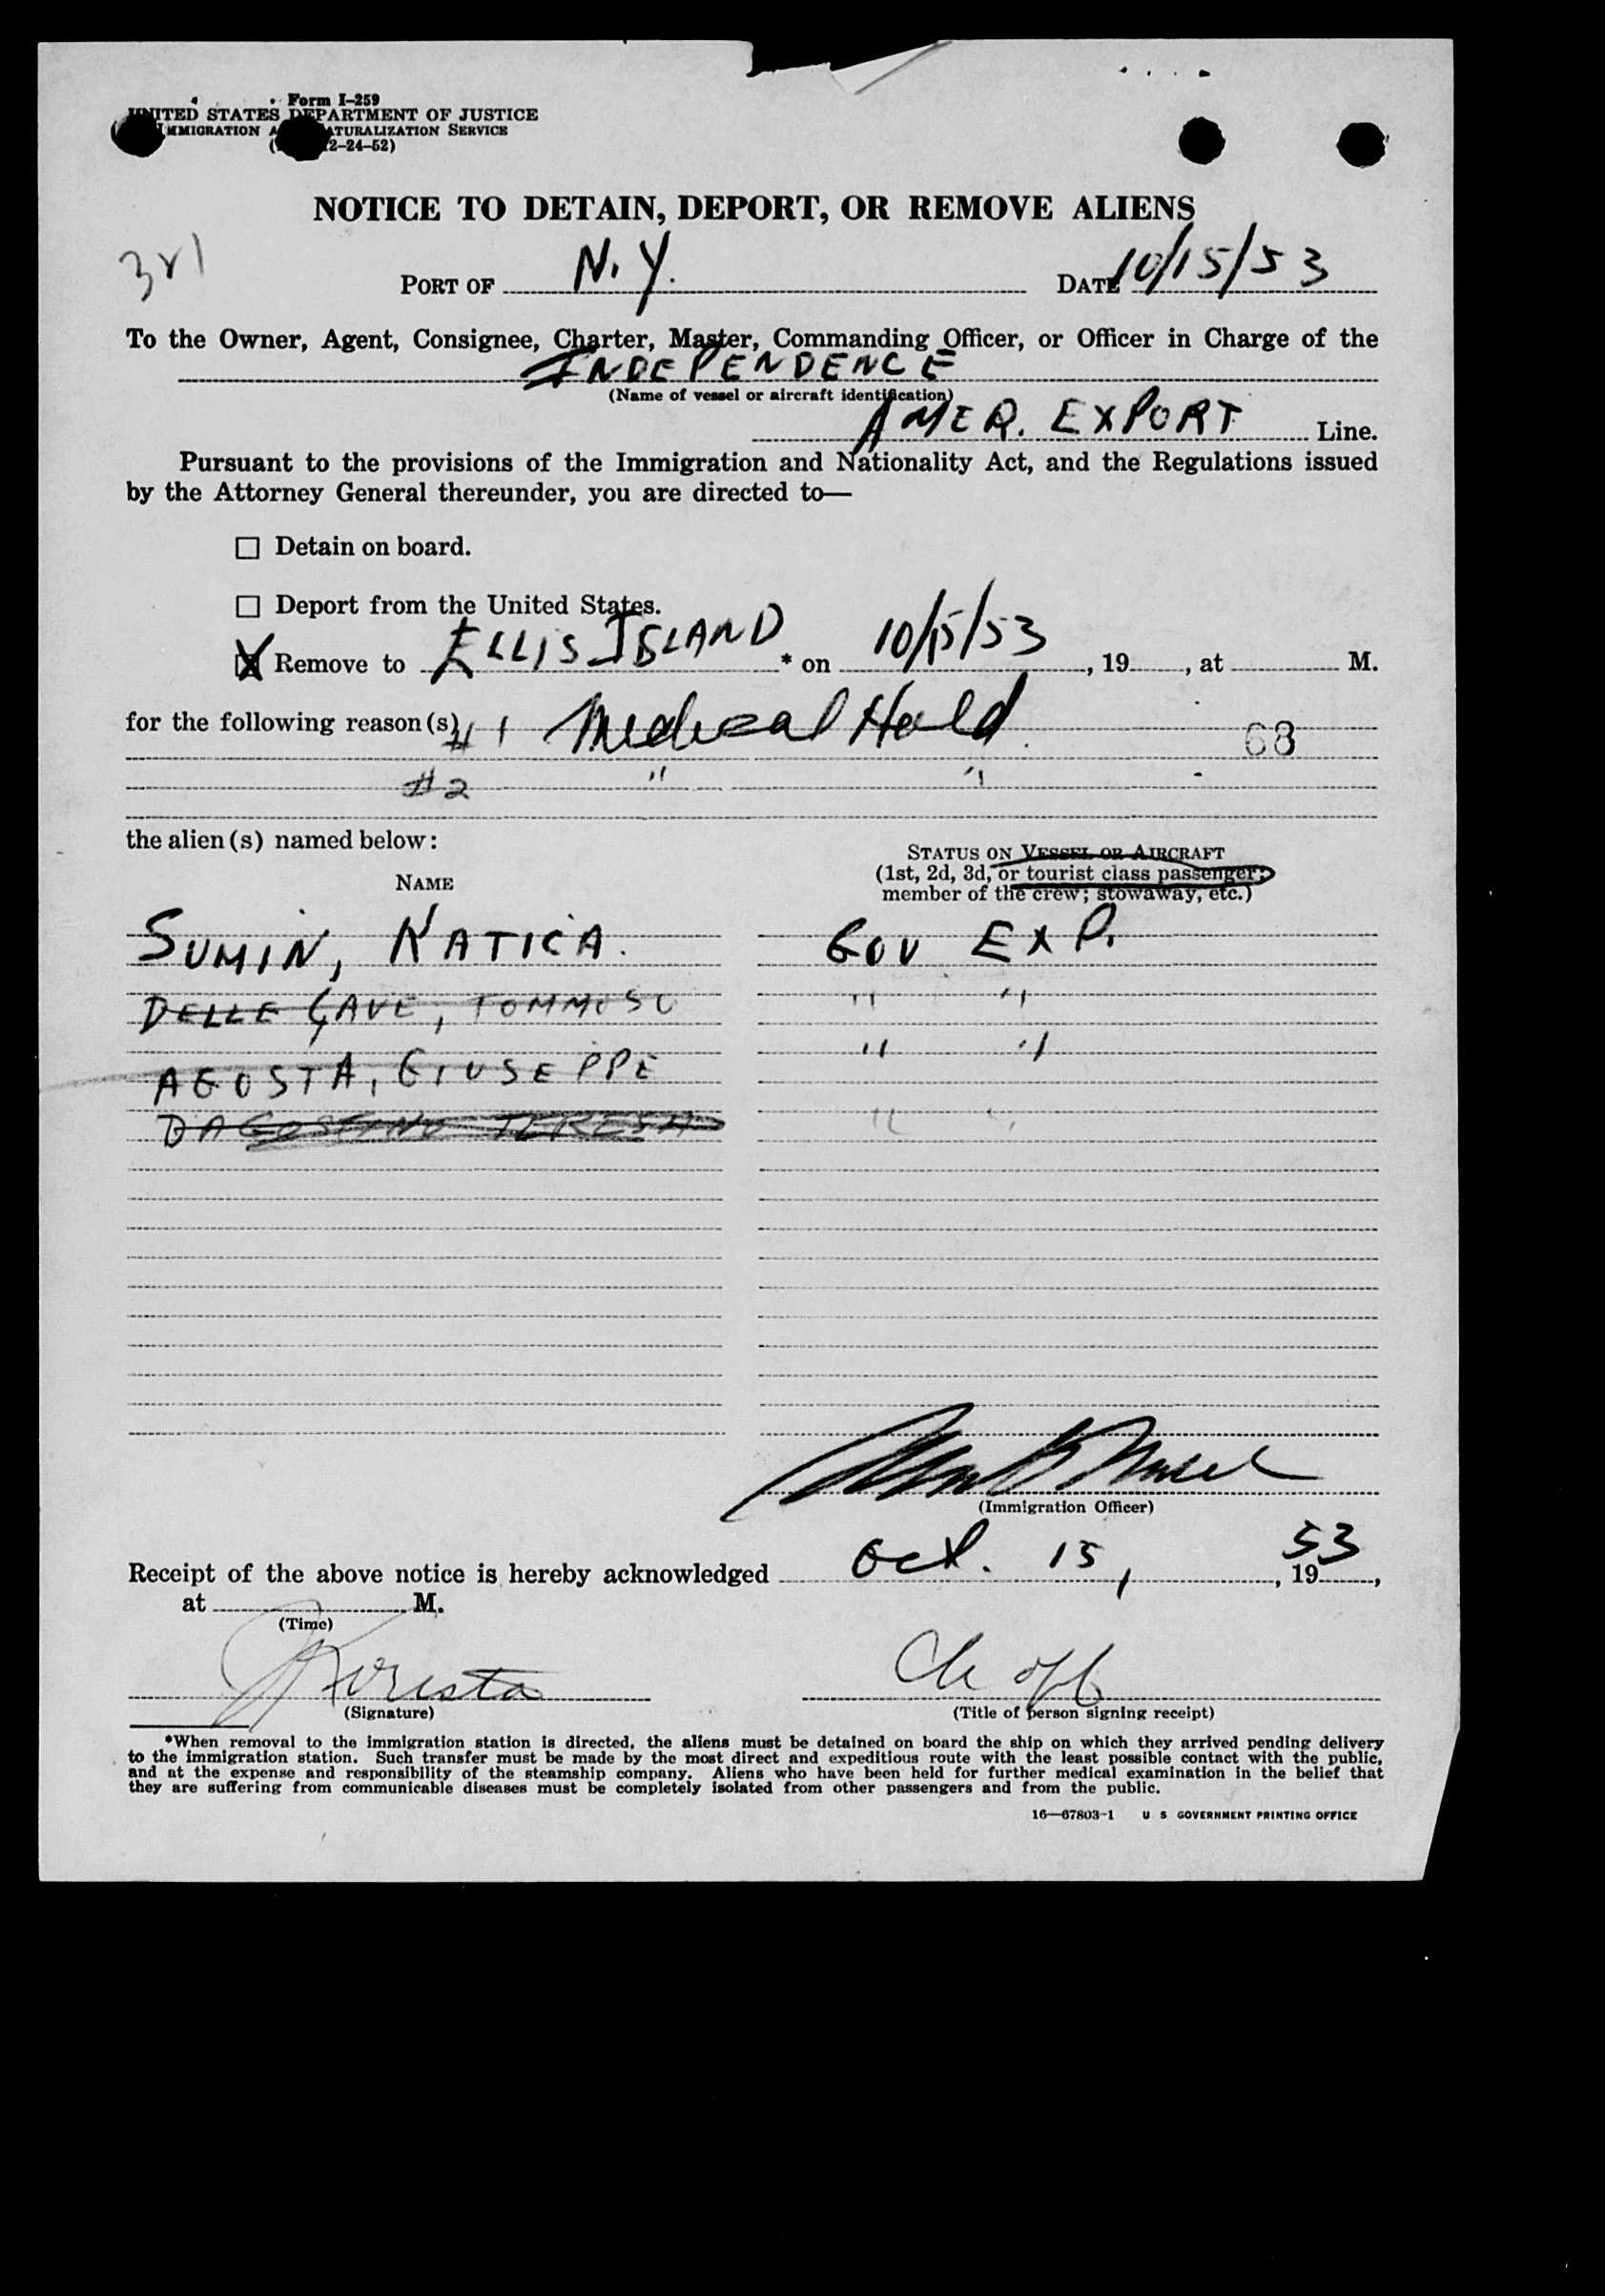 Form I-259
UNITED STATES DEPARTMENT OF JUSTICE
IMMIGRATION NATURALIZATION SERVICE
2-24-52)
NOTICE TO DETAIN, DEPORT, OR REMOVE ALIENS
PORT OF N.Y. DATE 10/15/53
To the Owner, Agent, Consignee, Charter, Master, Commanding Officer, or Officer in Charge of the
INDEPENDENCE
(Name of vessel or aircraft identification)
AMER. EXPORT Line.
Pursuant to the provisions of the Immigration and Nationality Act, and the Regulations issued
by the Attorney General thereunder, you are directed to—
☐ Detain on board.
☐ Deport from the United States.
☒ Remove to ELLIS ISLAND * on 10/15/53, 19, at M.
for the following reason(s) #1 Medical Hold
68
#2 " "
the alien(s) named below:
STATUS ON VESSEL OR AIRCRAFT
NAME (1st, 2d, 3d, or tourist class passenger;
member of the crew; stowaway, etc.)
SUMIN, KATICA. GOV EXP.
DELLE CAVE, TOMMOSO " "
AGOSTA, GIUSEPPE " "
DAGOSTINO TERESA " "
(Immigration Officer)
Receipt of the above notice is hereby acknowledged Oct. 15, , 1953,
at M.
(Time)
Ch off
(Signature) (Title of person signing receipt)
*When removal to the immigration station is directed, the aliens must be detained on board the ship on which they arrived pending delivery
to the immigration station. Such transfer must be made by the most direct and expeditious route with the least possible contact with the public,
and at the expense and responsibility of the steamship company. Aliens who have been held for further medical examination in the belief that
they are suffering from communicable diseases must be completely isolated from other passengers and from the public.
16—67803-1 U S GOVERNMENT PRINTING OFFICE